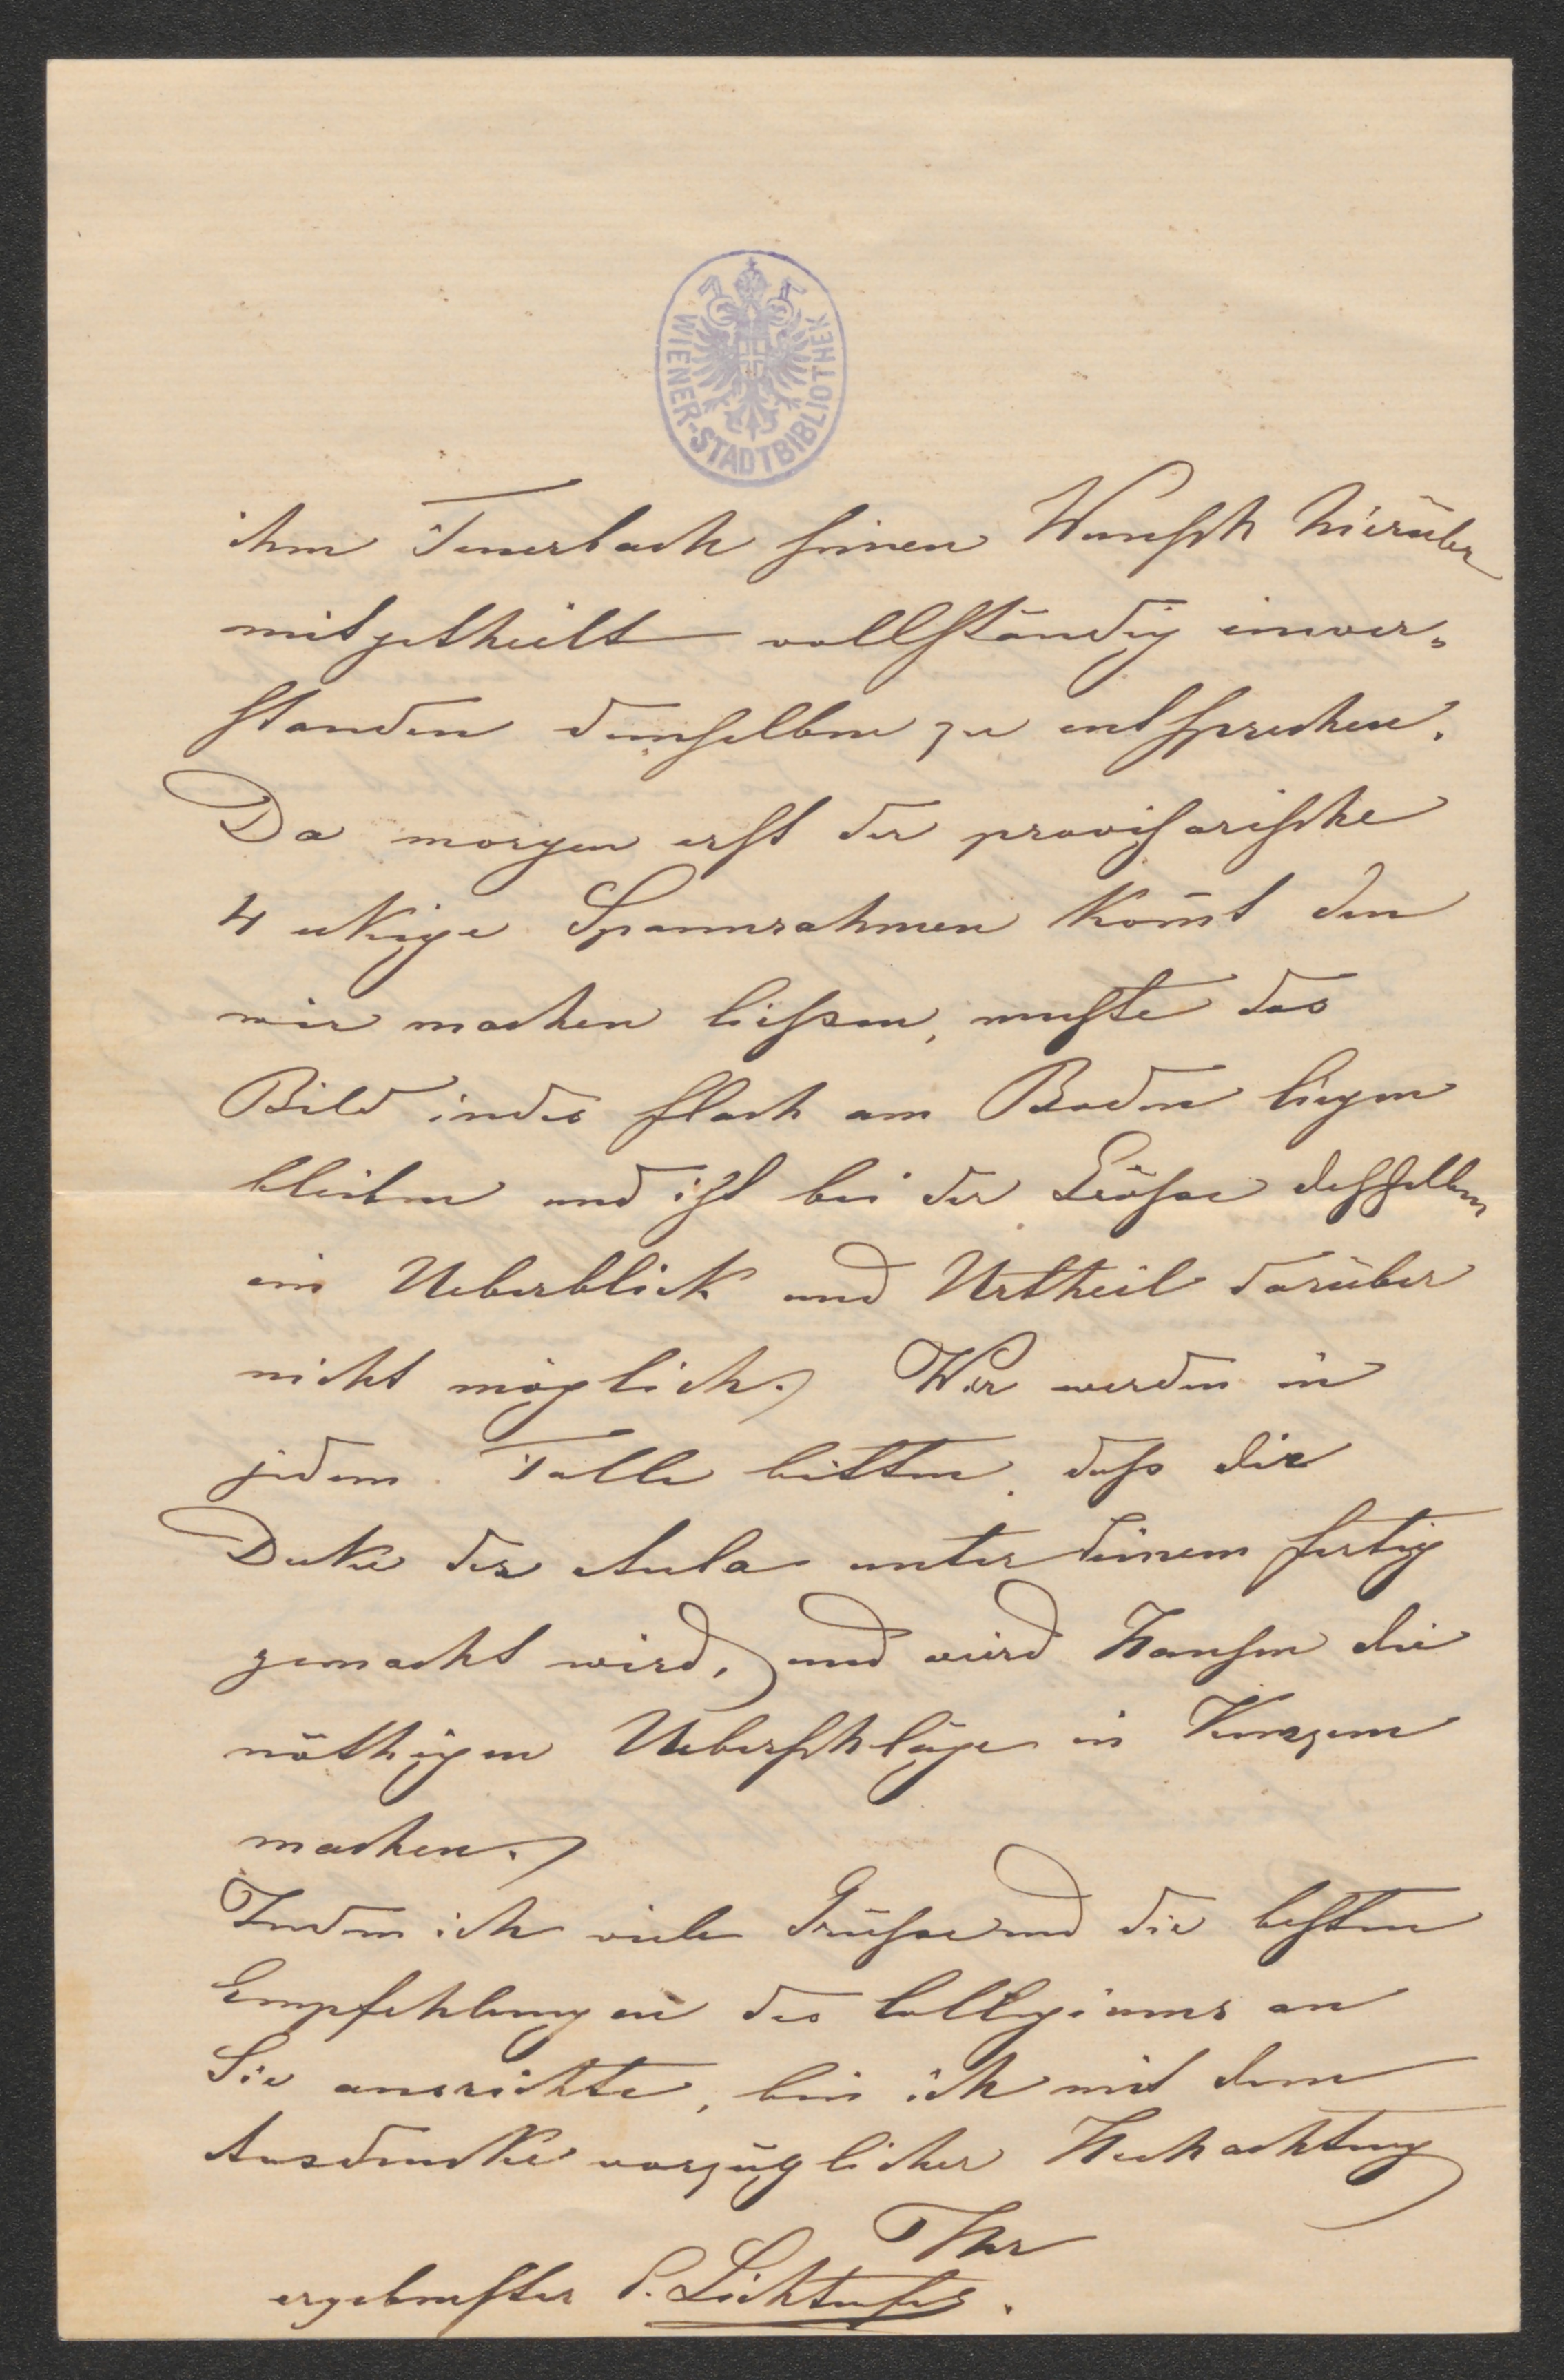 WIENER-STADTBIBLIOTHEK
ihm Feuerbach seinen Wunsch hierüber
mitgetheilt vollständig einver-
standen demselben zu entsprechen.
Da morgen erst der provisorische
4 eckige Spannrahmen kom̄t den
wir machen liessen, musste das
Bild indes flach am Boden liegen
bleiben und ist bei der Grösse desselben
ein Ueberblick und Urtheil darüber
nicht möglich. Wir werden in
jedem Falle bitten, dass die
Decke der Aula unter Einem fertig
gemacht wird, und wird Hansen die
nöthigen Ueberschläge in Kurzem
machen.
Indem ich viele Grüsse und die besten
Empfehlungen des Collegiums an
Sie ausrichte, bin ich mit dem
Ausdrucke vorzüglicher Hochachtung
Ihr
ergebenster E. Lichtenfels.